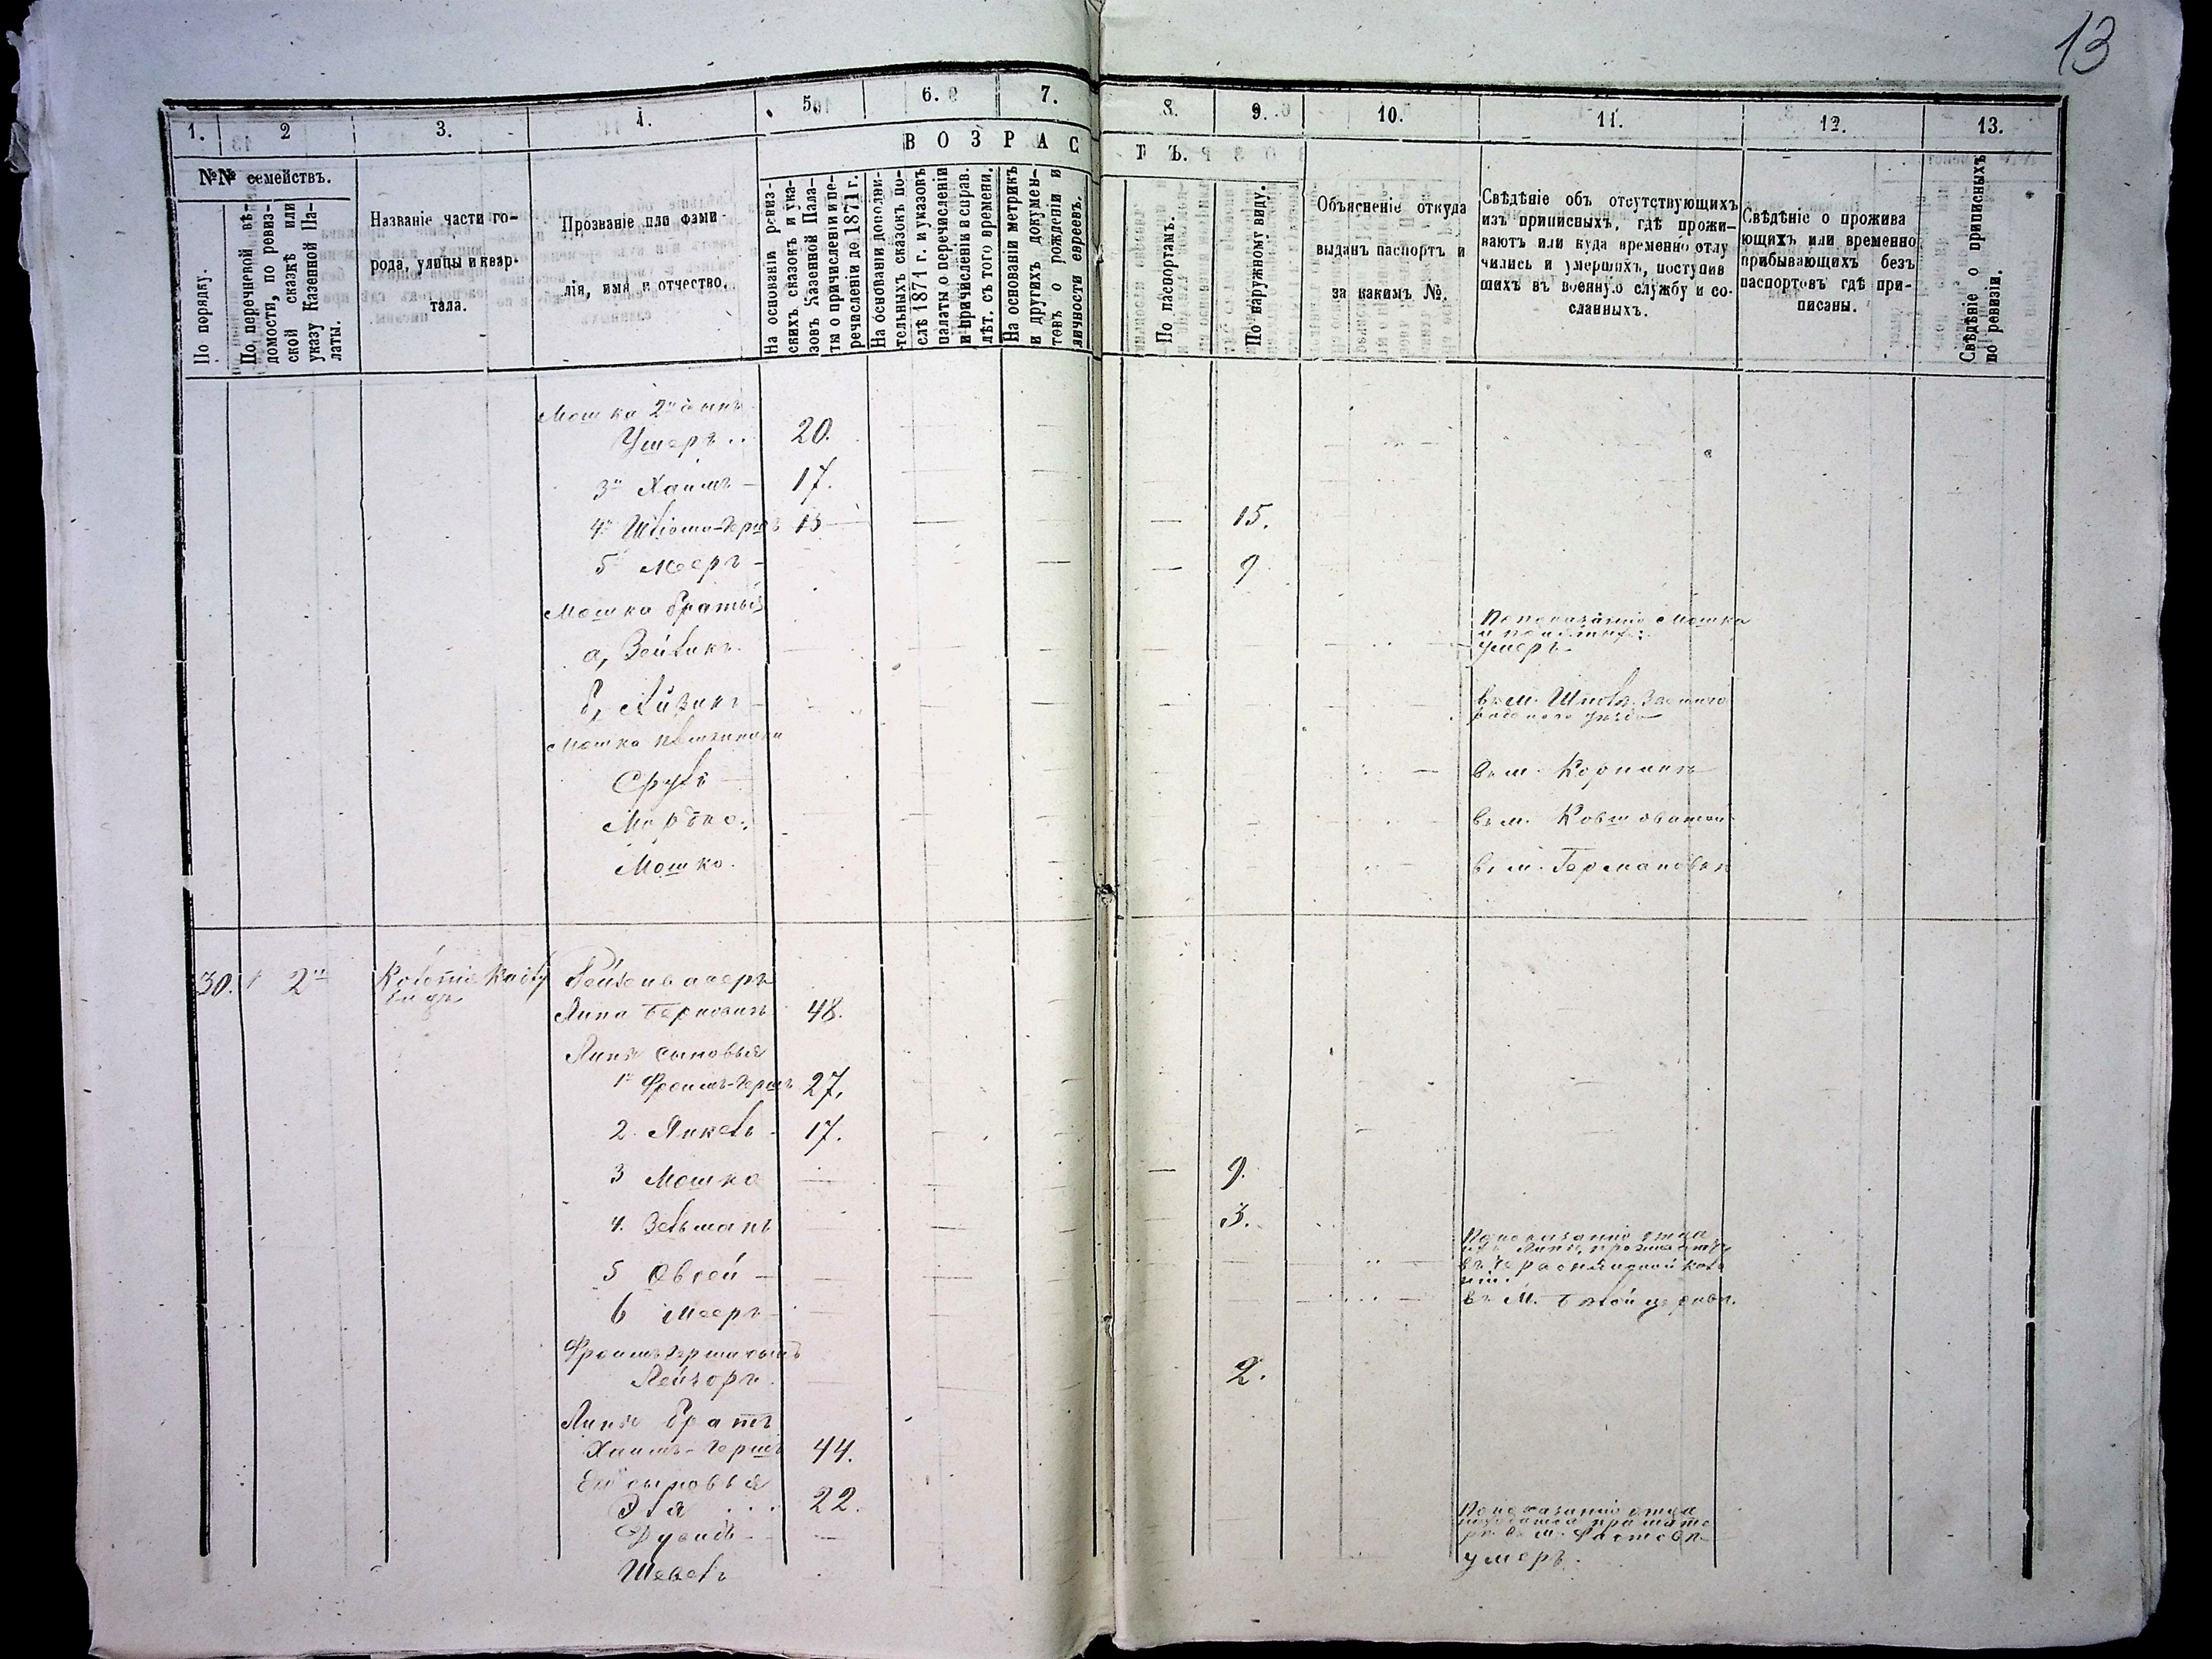 13
1. 2 3. 4. 5. 6. 7. 8. 9. 10. 11. 12. 13.
ВОЗРАСТЪ.
№№ семействъ.
По порядку.
По перечневой вѣ-
домости, по ревиз-
ской сказкѣ или
указу Казенной Па-
латы.
Названіе части го-
рода, улицы и квар-
тала.
Прозваніе или фами-
лія, имя и отчество.
На основаніи ревиз-
скихъ сказокъ и ука-
зовъ Казенной Пала-
ты о причисленіи и пе-
речисленіи до 1871 г.
На основаніи дополни-
тельныхъ сказокъ по-
слѣ 1871 г. и указовъ
палаты о перечисленіи
и причисленіи в справ.
лѣт. съ того времени.
На основаніи метрикъ
и другихъ докумен-
товъ о рожденіи и
личности евреевъ.
По паспортамъ.
По наружному виду.
Объясненіе откуда
выданъ паспортъ и
за какимъ №.
Свѣдѣніе объ отсутствующихъ
изъ приписныхъ, гдѣ прожи-
ваютъ или куда временно отлу
чились и умершихъ, поступив
шихъ въ военную службу и со-
сланныхъ.
Свѣдѣніе о прожива
ющихъ или временно
прибывающихъ безъ
паспортовъ гдѣ при-
писаны.
Свѣдѣніе о приписныхъ
по ревизіи.
Мошка 2й сынъ
Ушеръ .. 20.
3й Хаимъ — 17.
4й Шліома-Гершъ 13 — — 15.
5 Мееръ — — — 9
Мошка братья
а, Зейликъ. По показанію Мошка
умеръ
б, Айзикъ въ м.
Мошка племянники
Сруль въ м. Корнинѣ
Мордко. въ м. Ковшоватой
Мошко. въ м. Германовкѣ
30. 2й Колонія
Липа Берковичъ 48.
Липы сыновья
1й Фроимъ-Гершъ 27.
2. Янкель 17.
3 Мошко — 9.
4. Зельманъ 3.
5 Овсей — По показанію отца
6 Мееръ въ М. Бѣлой церкви.
Фроимъ Герша сынъ
Лейзоръ 2.
Липы братъ
Хаимъ-Гершъ 44.
Его сыновья
Эля ... 22.
Дувидъ — По показанію отца
въ м. Фастовѣ
Шевель умеръ.